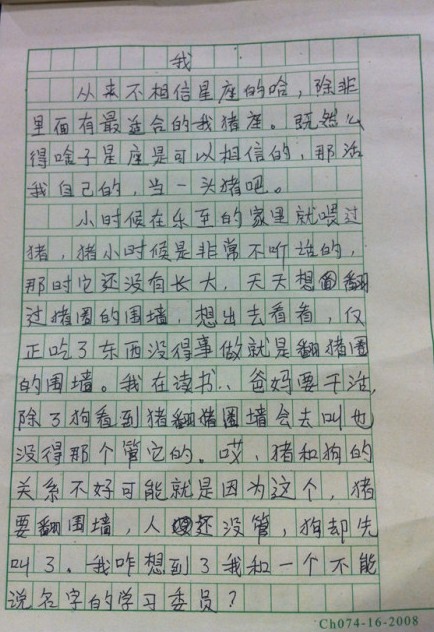 我
从来不相信星座的哈，除非
里面有最适合的我猪座。既然么
得啥子星座是可以相信的，那活
我自己的，当一头猪吧。
小时候在乐至的家里就喂过
猪，猪小时候是非常不听话的，
那时它还没有长大，天天想翻
过猪圈的围墙，想出去看看，仅
正吃了东西没得事做就是翻猪圈
的围墙。我在读书，爸妈要干活，
除了狗看到猪翻猪圈墙会去叫也
没得那个管它的。哎，猪和狗的
关系不好可能就是因为这个，猪
要翻围墙，人还没管，狗却先
叫了。我咋想到了我和一个不能
说名字的学习委员？
Ch074-16-2008